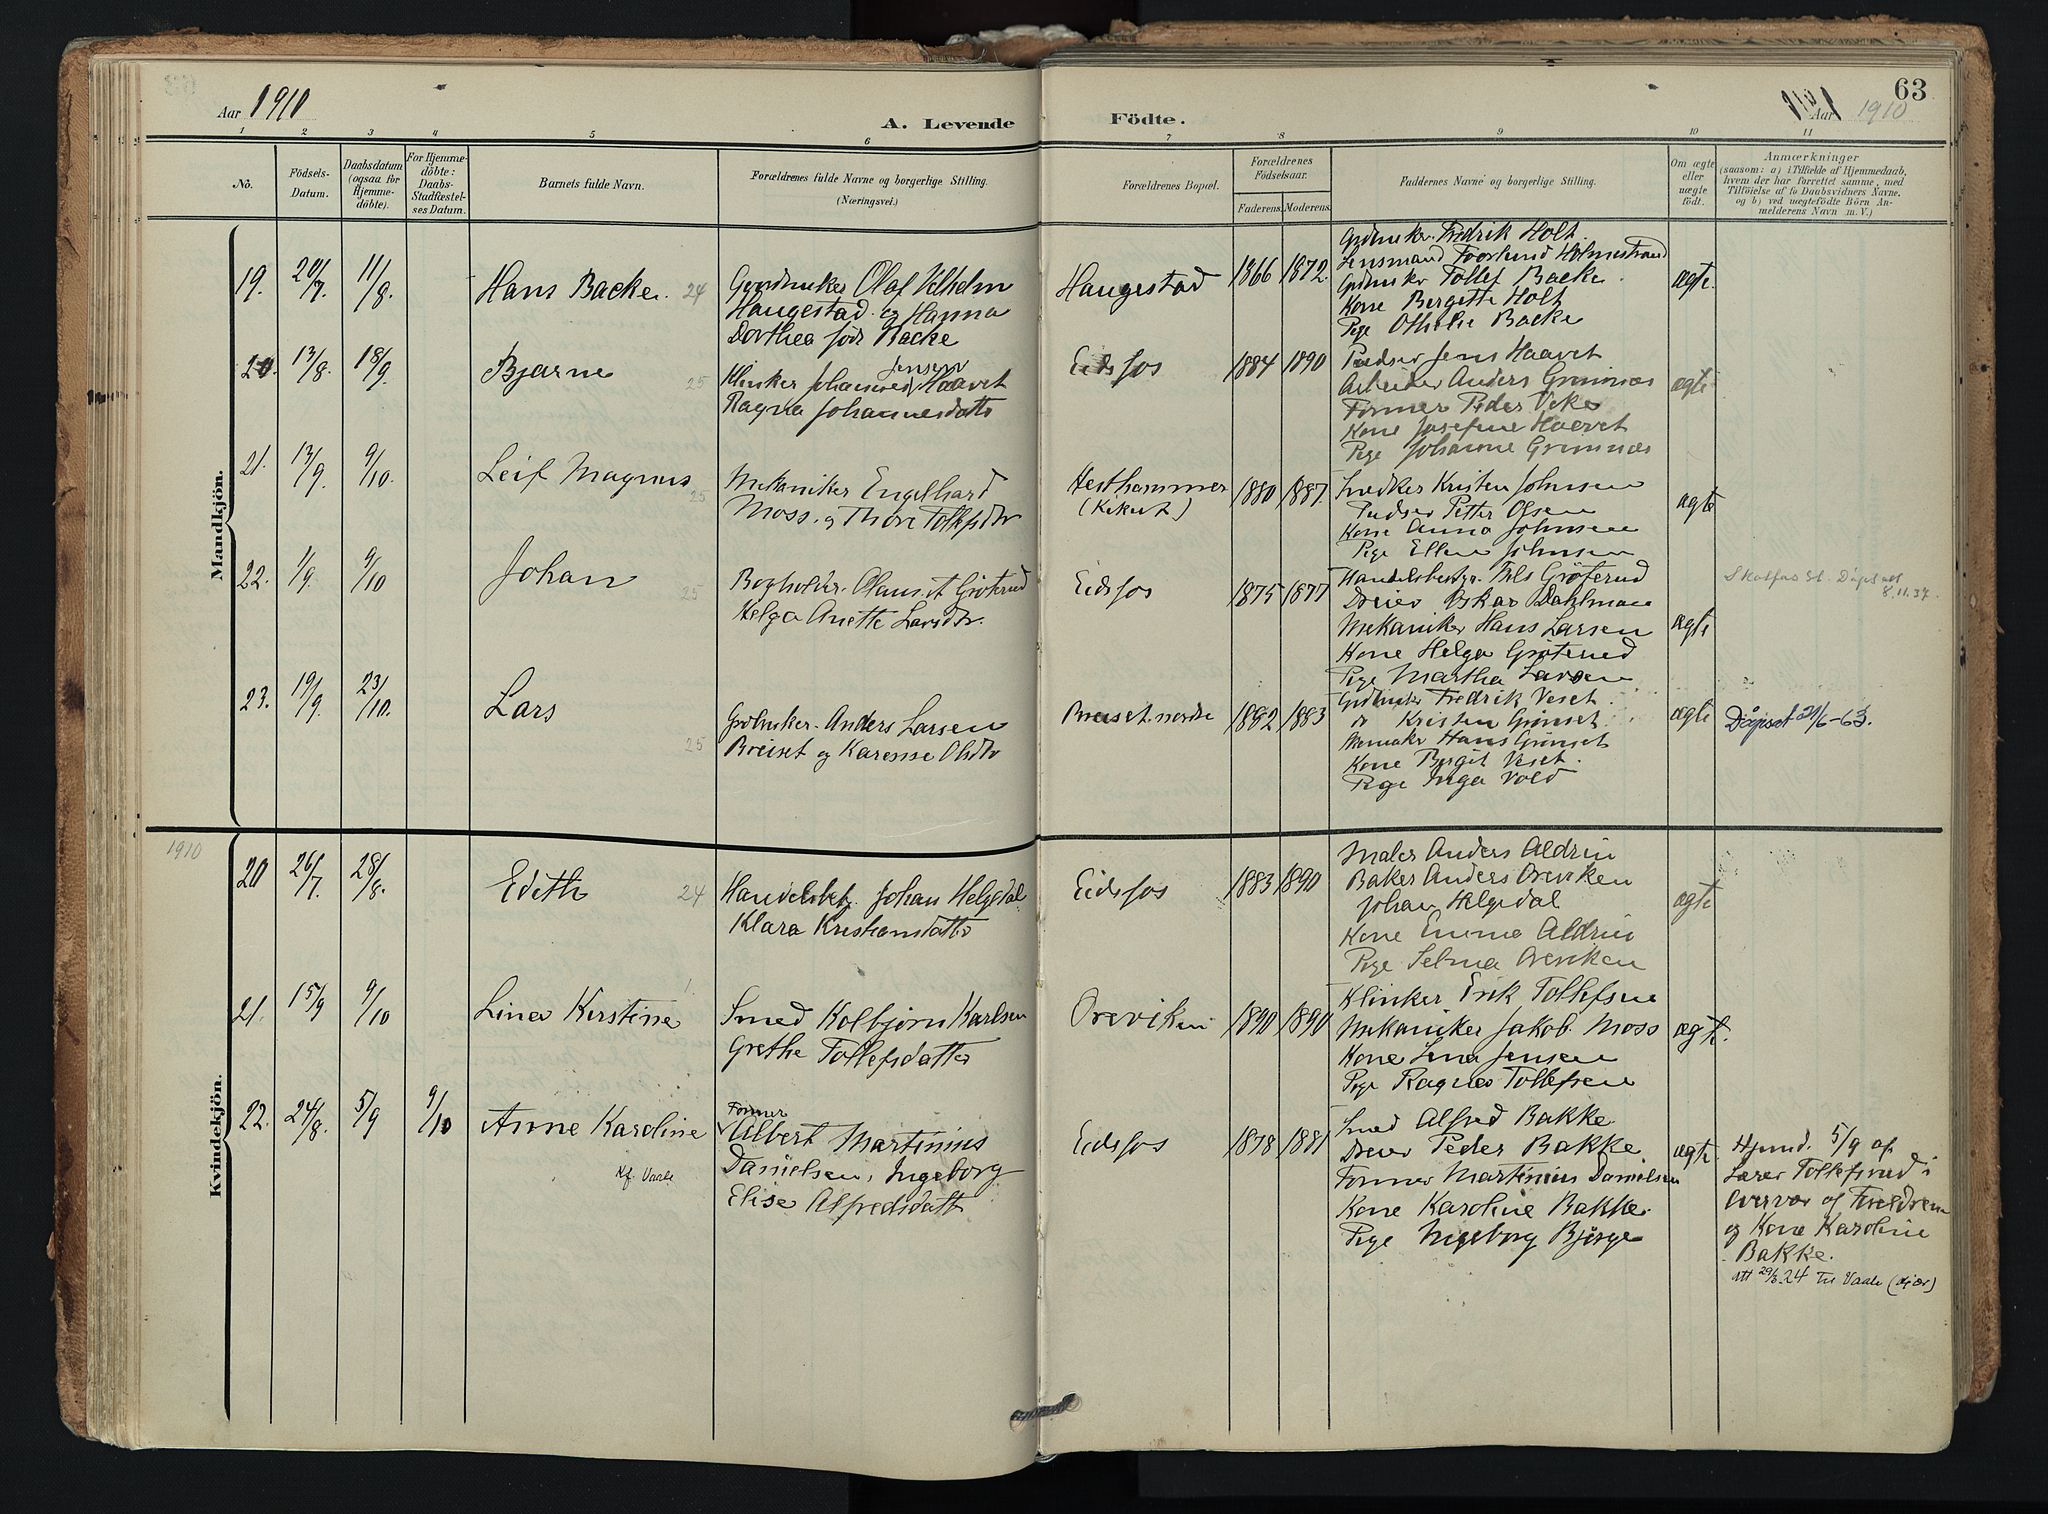 Aar 1910
A. Levende
Födte.
63
Aar 1910
1 2 3 4 5 6 7 8 9 10 11
No.
Födsels-
Datum.
Daabsdatum
(ogsaa for
Hjemme-
döbte).
For Hjemme-
döbte:
Daabs-
Stadfæstel-
ses Datum.
Barnets fulde Navn.
Forældrenes fulde Navne og borgerlige Stilling.
(Næringsvei.)
Forældrenes Bopæl.
Forældrenes
Födselsaar.
Faderens. Moderens.
Faddernes Navne og borgerlige Stilling.
Om ægte
eller
uægte
födt.
Anmærkninger
(saasom: a) i Tilfælde af Hjemmedaab,
hvem der har forrettet samme, med
Tilföielse af to Daabsvidners Navne.
og b) ved uægtefödte Börn An-
melderens Navn m. V.)
Mandkjön.
19. 20/7 11/8.
Hans Backe. 24
Gaardbruker Olaf Vilhelm
Haugestad og Hanna
Dorthea født Backe
Haugestad
1866 1872.
Grdbruker Fredrik Holt.
Lensmand Foorlund Holmestrand
Grdbruker Tollef Backe
Kone Bergette Holt
Pige Othilie Backe
ægte.
20. 13/8. 18/9.
Bjarne 25
Jensen
Klinker Johannes Haavet
Ragna Johannesdatter
Eidsfos
1884 1890
Pudser Jens Haavet
Arbeider Anders Grimnæs
Former Peder Veke
Kone Josefine Haavet
Pige Johanne Grimnæs
ægte
21. 13/9. 9/10.
Leif Magnus 25
Mekaniker Engelhard
Moss. og Thora Tollefsdtr
Hesthammer
(Kekut)
1880 1887.
Snedker Kristen Johnsen
Pudser Petter Olsen
Kone Anna Johnsen
Pige Ellen Johnsen
ægte
22. 1/9. 9/10
Johan 25
Bogholder. Olaus Grøterud
Helga Anette Larsdtr.
Eidsfos
1875 1877
Handelsbestyr. Nils Grøterud
Dreier Oskar Dahlman
Mekaniker Hans Larsen
Kone Helga Grøterud
Pige Martha Larsen
ægte
8.11.37.
23. 19/9. 23/10.
Lars 25
Grdbruker. Anders Larsen
Breiset og Karense Olsdtr
Breiset nordre
1882 1883
Grdbruker Fredrik Veset.
do Kristen Grønset
Hans Grønset
Kone Birgit Veset.
Pige Inga Vold
ægte
Døpeat 21/6-63.
Kvindekjön.
1910
20 26/7. 28/8.
Edith 24
Handelsbetj. Johan Helgedal
Klara Kristiansdatter
Eidsfos
1883 1890
Maler Anders Aldrin
Baker Anders Oreviken
Johan Helgedal
Kone Emma Aldrin
Pige Selma Oreviken
ægte
21. 15/9 9/10
Lina Kirstine 1.
Smed Kolbjørn Karlsen
Grethe Tollefsdatter
Oreviken
1890 1890
Klinker Erik Tollefsen
Mekaniker Jakob Moss
Kone Lina Jensen
Pige Ragna Tollefsen
ægte.
22. 24/8. 5/9 9/10
Anne Karoline
Kf. Vaale
Former
Albert Martinius
Danielsen, Ingeborg
Elise Alfredsdatt
Eidsfos
1878 1881
Smed Alfred Bakke
Dreier Peder Bakke.
Former Martinius Danielsen
Kone Karoline Bakke.
Pige Ingeborg Bjerge
ægte.
Hjemd. 5/9 af
Lærer Tollefsrud i
overvær af Forældrene
og Kone Karoline
Bakke.
Att 29/3.24 til Vaale